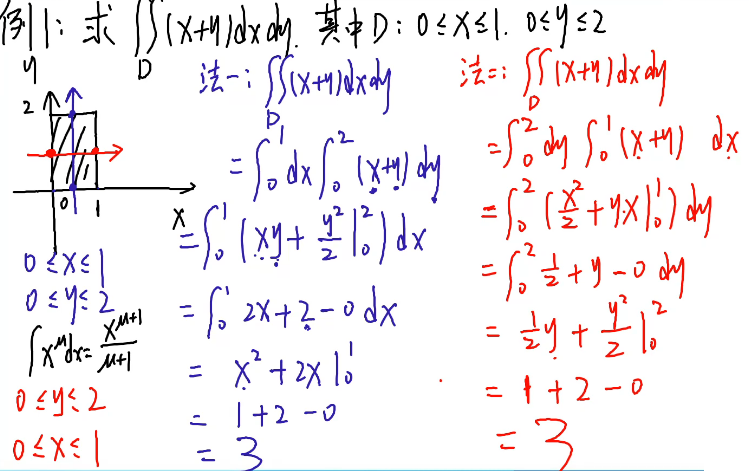 例1: 求 ∬_D (x+y)dxdy. 其中D: 0≤x≤1. 0≤y≤2
y
2
0 1
x
0≤x≤1
0≤y≤2
∫x^μ dx = x^(μ+1)/(μ+1)
0≤y≤2
0≤x≤1
法一: ∬_D (x+y)dxdy
= ∫_0^1 dx ∫_0^2 (x+y) dy
= ∫_0^1 (xy + y²/2 |_0^2) dx
= ∫_0^1 2x+2-0 dx
= x²+2x |_0^1
= 1+2-0
= 3
法二: ∬_D (x+y)dxdy
= ∫_0^2 dy ∫_0^1 (x+y) dx
= ∫_0^2 (x²/2 + y·x |_0^1) dy
= ∫_0^2 1/2 + y - 0 dy
= 1/2 y + y²/2 |_0^2
= 1+2-0
= 3